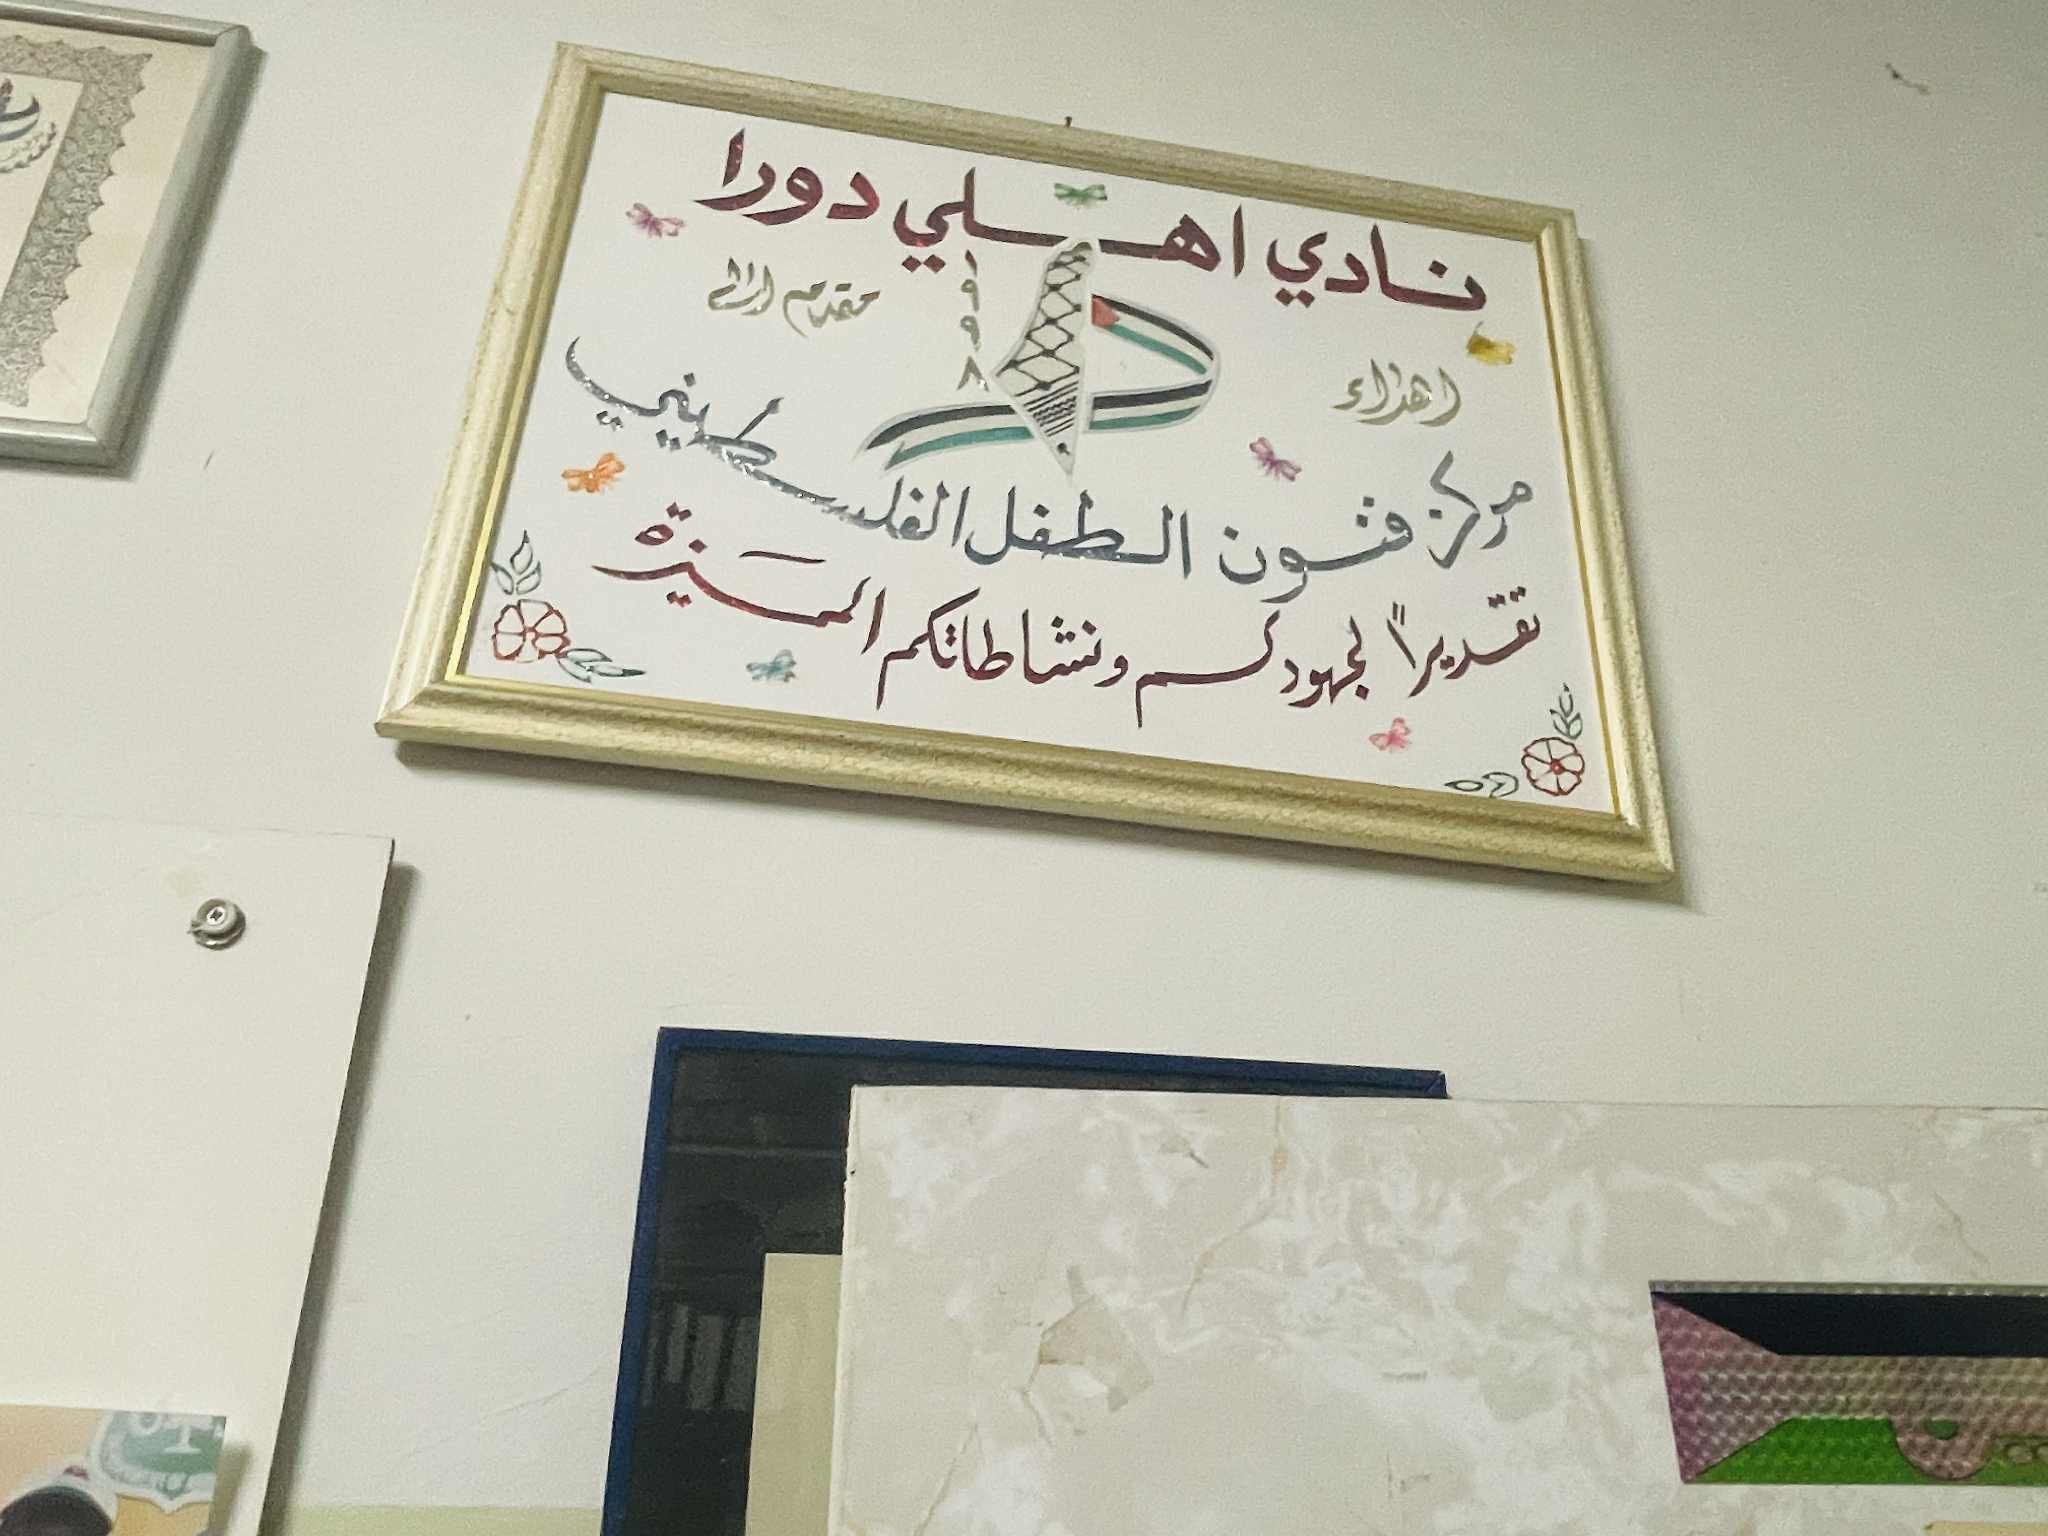 نادي اهلي دورا
اهداء
مقدم الى
مركز فنون الطفل الفلسطيني
تقديراً لجهودكم ونشاطاتكم المميزة